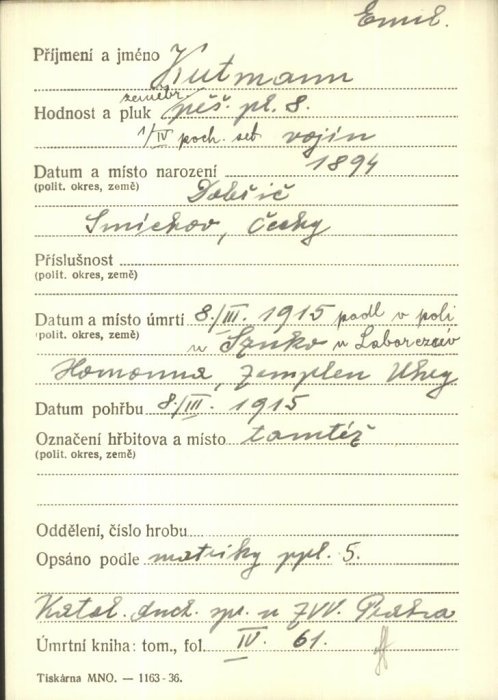 Emil.
Příjmení a jméno Kutmann
zeměbr.
Hodnost a pluk pěš. pl. 8.
1/IV poch. set vojín
Datum a místo narození 1894
(polit. okres, země) Dobšič
Smíchov, Čechy
Příslušnost
(polit. okres, země)
Datum a místo úmrtí 8./III. 1915 padl v poli
(polit. okres, země) u Szuko u Laborczév
Homonna, Zemplen Uhry
Datum pohřbu 8./III. 1915
Označení hřbitova a místo tamtéž
(polit. okres, země)
Oddělení, číslo hrobu
Opsáno podle matriky ppl. 5.
Katol. duch. spr. u ZVV. Praha
Úmrtní kniha: tom., fol. IV. 61.
Tiskárna MNO. — 1163-36.